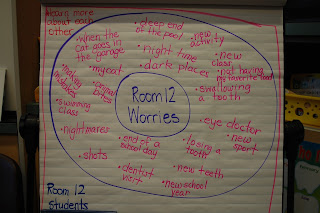 learn more
about each
other
• deep end
of the pool
• new
activity
• when the
cat goes in
the garage
• night time
• dark places
• new
class
• not having
my favorite food
• my cat
• swallowing
a tooth
• making
mistakes
Room 12
Worries
• swimming
class
• eye doctor
• new
sport
• nightmares
• end of a
school day
• losing a
tooth
• shots
• dentist
visit
• new teeth
• new school
year
Room 12
Students